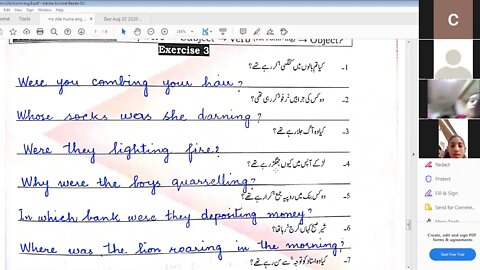 ms zille huma eng 8.pdf - Adobe Acrobat Reader DC
Exercise 3
Object?
1- کیا تم بالوں میں کنگھی کر رہے تھے؟
Were you combing your hair?
2- وہ کس کی جرابیں رفو کر رہی تھی؟
Whose socks was she darning?
3- کیا وہ آگ جلا رہے تھے؟
Were they lighting fire?
4- لڑکے آپس میں کیوں جھگڑ رہے تھے؟
Why were the boys quarselling?
5- وہ کس بنک میں روپیہ جمع کرا رہے تھے؟
In which bank were they depositing money?
6- شیر صبح کہاں گرج رہا تھا؟
Where was the lion roaring in the morning?
7- کیا وہ استاد کو توجہ سے سن رہے تھے؟
C
Redact
Protect
Fill & Sign
Send for Comme...
Create, edit and sign PDF
forms & agreements
Start Free Trial